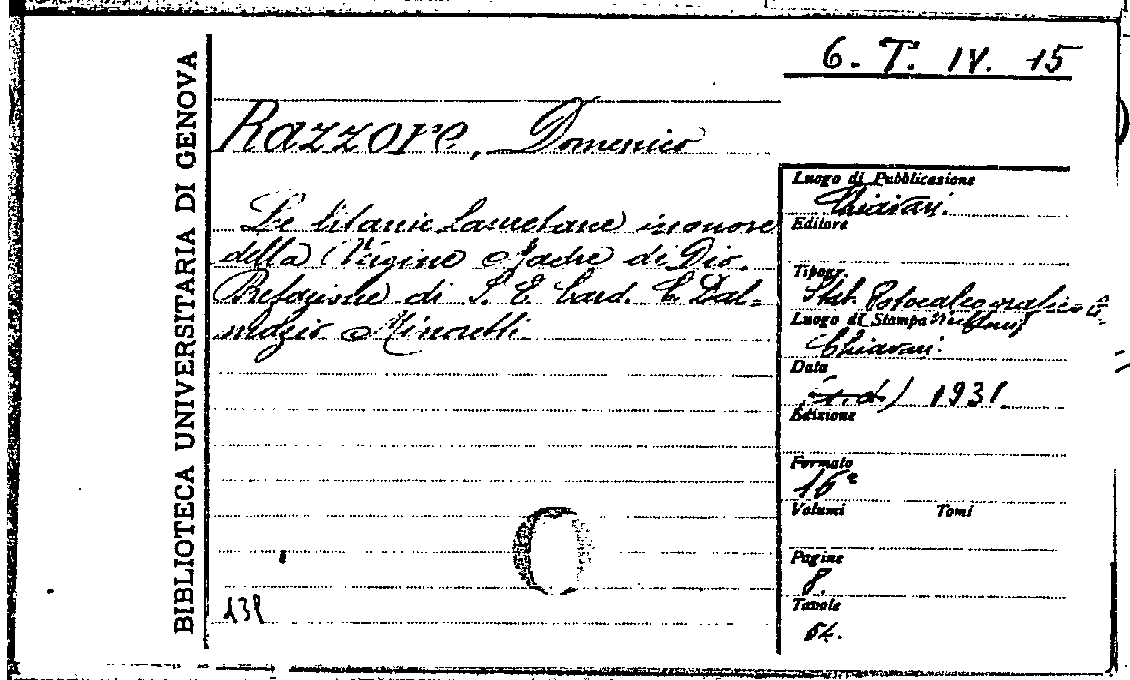 6. T. IV. 15
BIBLIOTECA UNIVERSITARIA DI GENOVA
Razzore, Domenico
Le litanie Lauretane in onore
della Vergine Madre di Dio.
Prefazione di S. E. Card. C. Dal-
mazio Minoretti.
Luogo di Pubblicazione
Chiavari.
Editore
Tipogr.
Stab. Fotocalcografico
Luogo di Stampa
Chiavari.
Data
(s.d.) 1931
Edizione
Formato
16°
Volumi Tomi
Pagine
8.
Tavole
54.